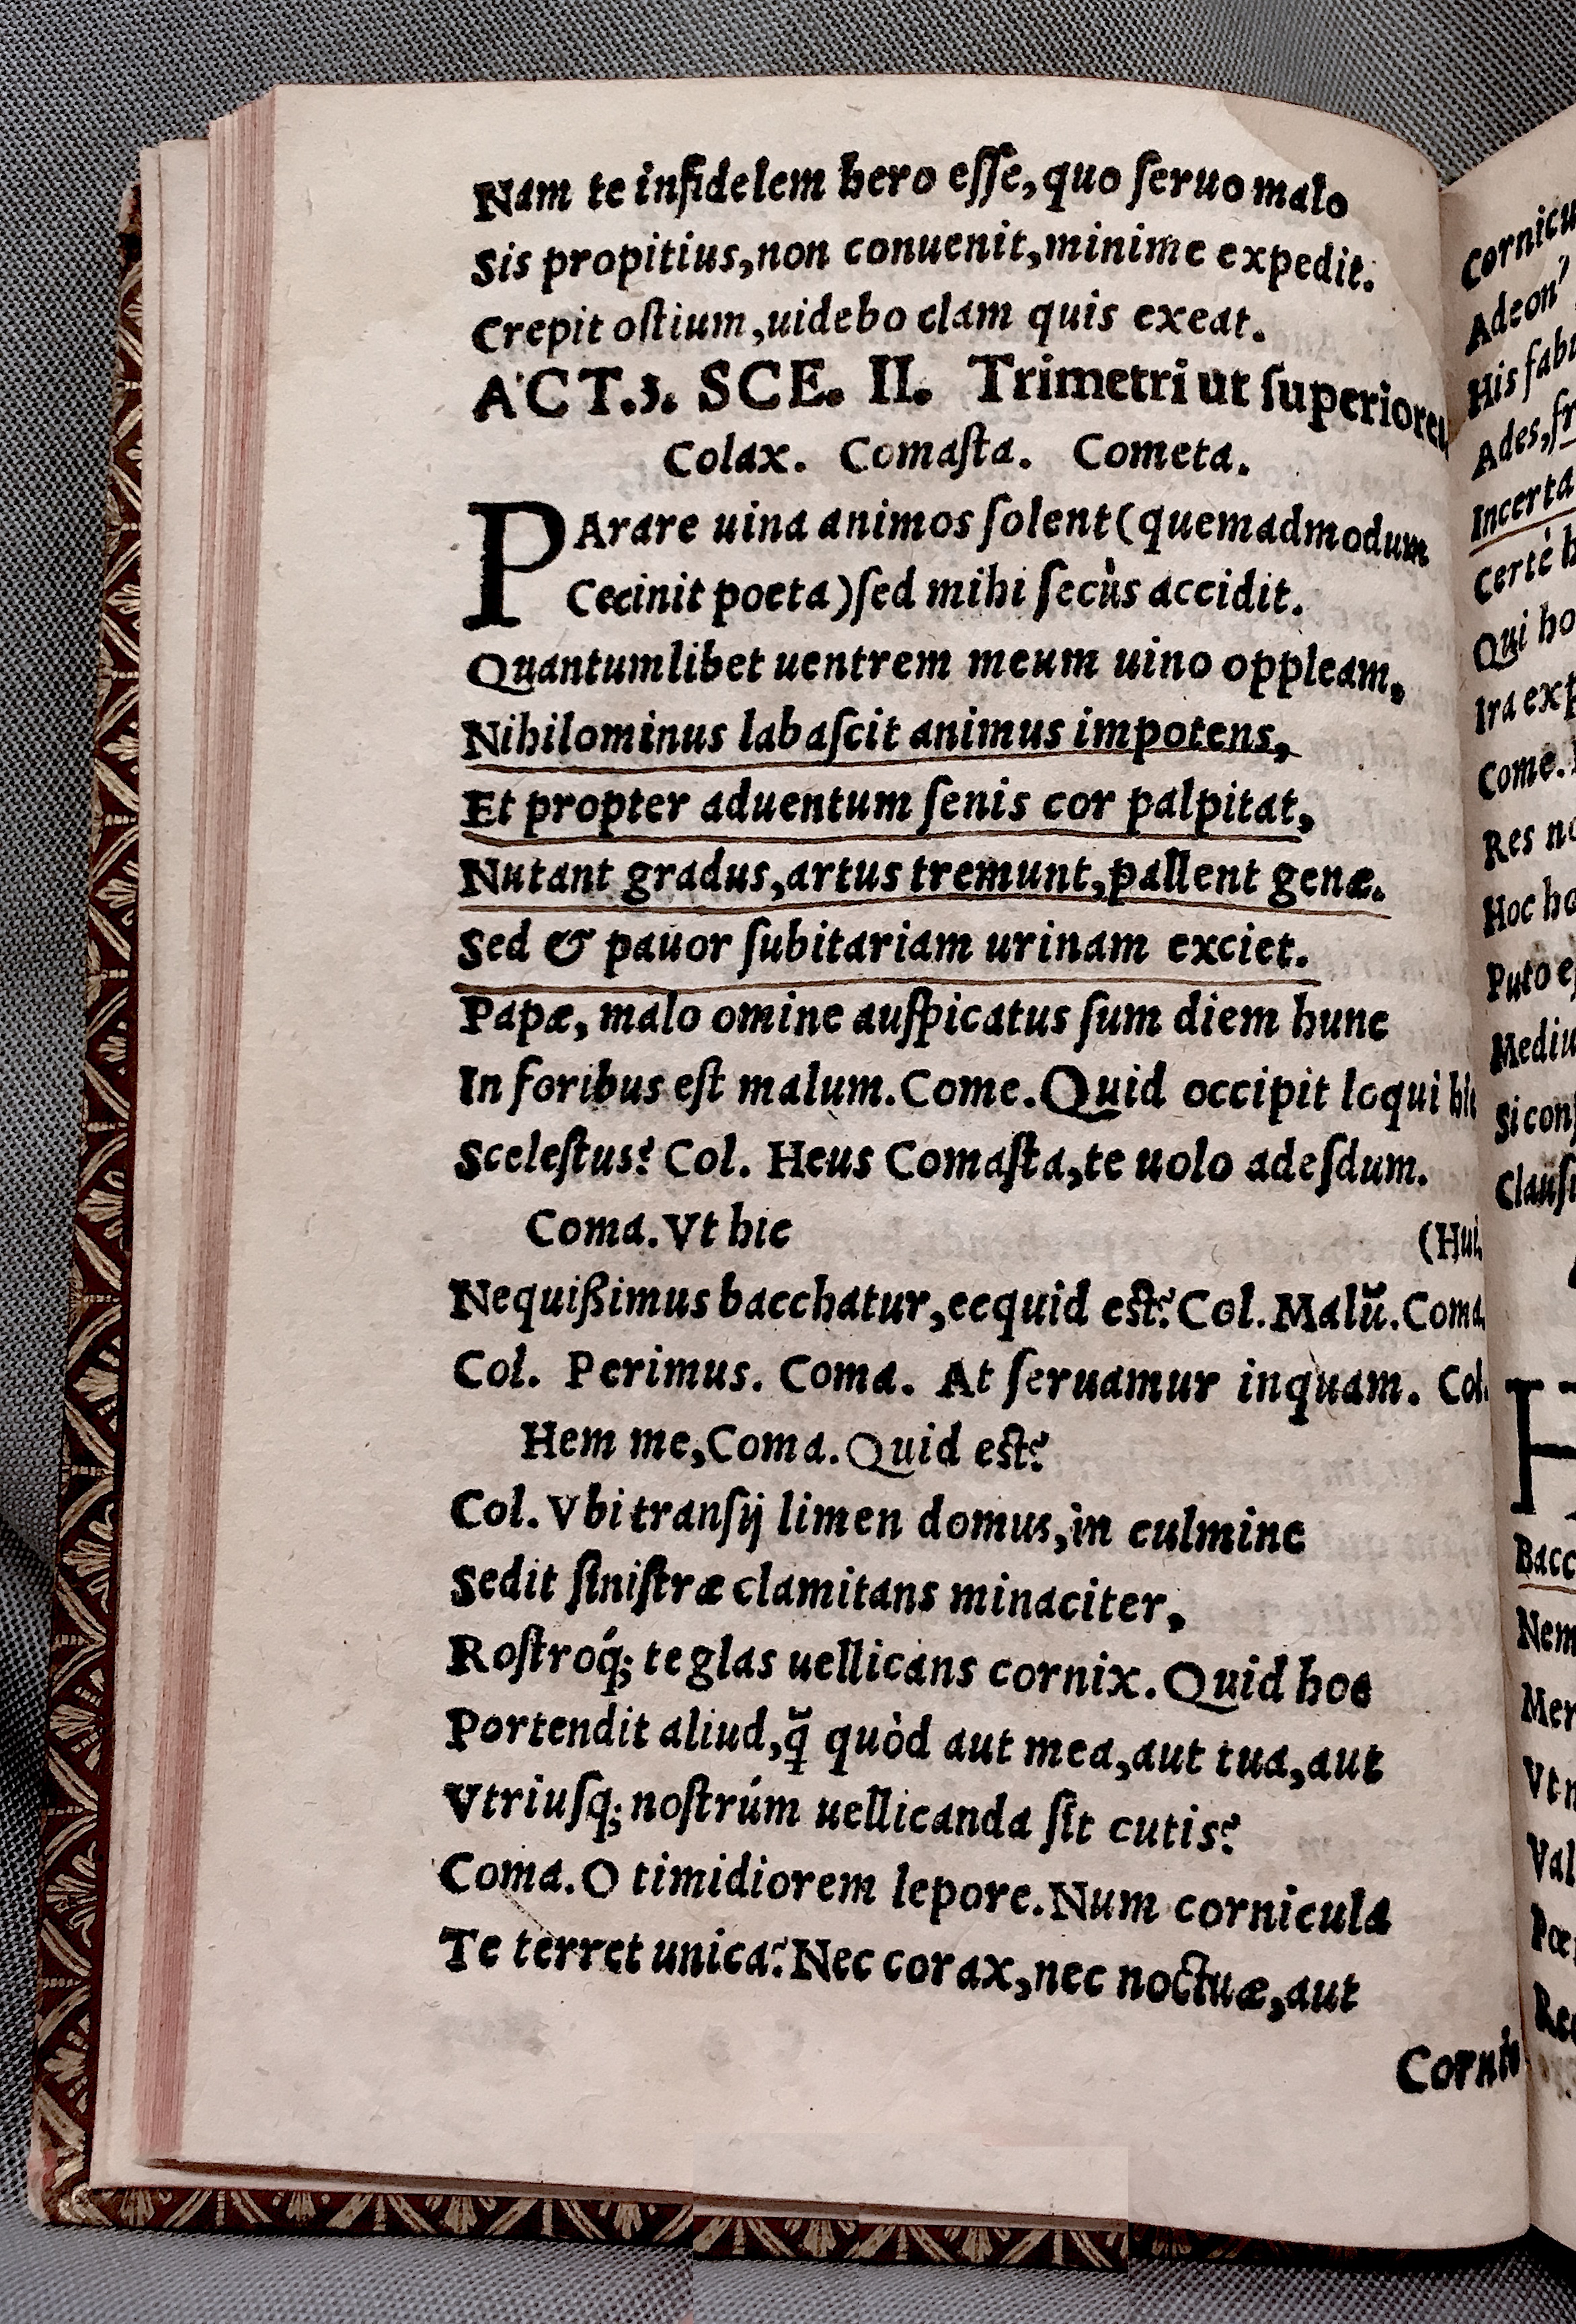 Nam te infidelem hero eſſe, quo ſeruo malo
Sis propitius, non conuenit, minime expedit.
Crepit oſtium, uidebo clam quis exeat.
ACT.3. SCE. II. Trimetri ut ſuperiores
Colax. Comaſta. Cometa.
PArare uina animos ſolent (quemadmodum
Cecinit poeta) ſed mihi ſecùs accidit.
Quantumlibet uentrem meum uino oppleam,
Nihilominus labaſcit animus impotens,
Et propter aduentum ſenis cor palpitat,
Nutant gradus, artus tremunt, pallent genæ.
Sed & pauor ſubitariam urinam exciet.
Papæ, malo omine auſpicatus ſum diem hunc
In foribus eſt malum. Come. Quid occipit loqui hic
Sceleſtus? Col. Heus Comaſta, te uolo adeſdum.
Coma. Vt hic
(Hui.
Nequißimus bacchatur, ecquid eſt? Col. Malū. Coma.
Col. Perimus. Coma. At ſeruamur inquam. Col.
Hem me, Coma. Quid eſt?
Col. Vbi tranſij limen domus, in culmine
Sedit ſiniſtræ clamitans minaciter,
Roſtroq́; teglas uellicans cornix. Quid hoc
Portendit aliud, q̃ quòd aut mea, aut tua, aut
Vtriuſq; noſtrúm uellicanda ſit cutis?
Coma. O timidiorem lepore. Num cornicula
Te terret unica? Nec corax, nec noctuæ, aut
Cornic
Cornicu
Adeon'
His fabu
Ades, fr
Incerta
Certè h
Qui ho
Ira ext
Come.
Res no
Hoc ho
Puto eſ
Mediu
Si conſ
Clauſu
H
Bacc
Nem
Mer
Vtn
Val
Pœ
Rec